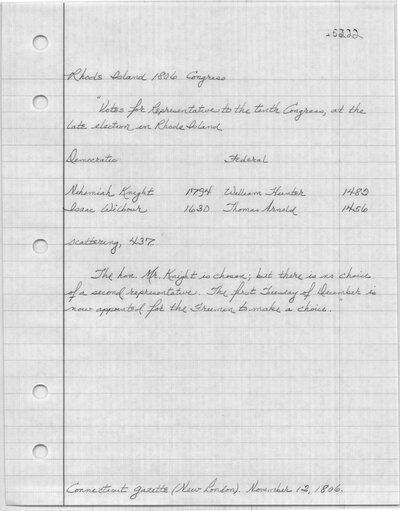 5222
Rhode Island 1806 Congress
"Votes for Representative to the tenth Congress, at the
late election in Rhode Island
Democratic Federal
Nehemiah Knight 1794 William Hunter 1480
Isaac Wilbour 1630 Thomas Arnold 1456
scattering, 437.
The hon. Mr. Knight is chosen; but there is no choice
of a second representative. The first Tuesday of December is
now appointed for the Freemen to make a choice."
Connecticut Gazette (New London). November 12, 1806.